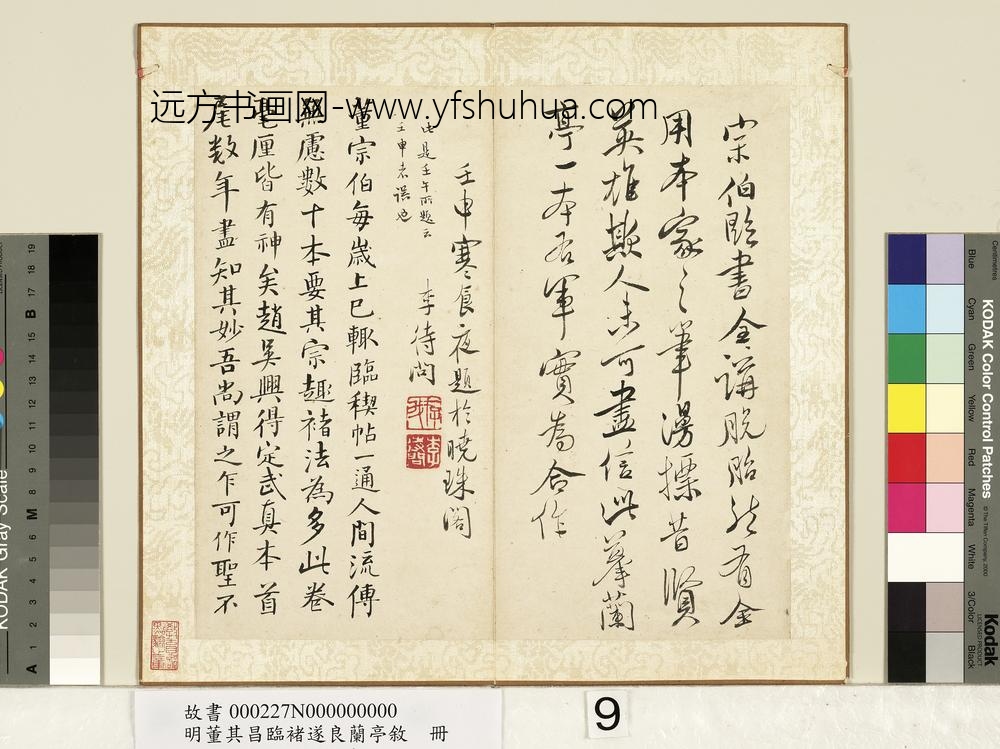 远方书画网-www.yfshuhua.com
宗伯臨書全講脱胎然有全
用本家之筆漫摽昔賢
英雄欺人未可盡信此摹蘭
亭一本右軍實為合作
壬申寒食夜題於曉珠閣
李待問
此是壬午所題云
壬申者誤也
董宗伯每歲上巳輒臨稧帖一通人間流傳
無慮數十本要其宗趣褚法為多此卷
毫厘皆有神矣趙吳興得定武真本首
尾数年盡知其妙吾尚謂之乍可作聖不
故書 000227N000000000
明董其昌臨褚遂良蘭亭敘 冊
9
KODAK Gray Scale
A 1 2 3 4 5 6 M 8 9 10 11 12 13 14 15 B 17 18 19
KODAK Color Control Patches
Kodak
LICENSED PRODUCT
© The Tiffen Company, 2000
Centimetres
Blue
Cyan
Green
Yellow
Red
Magenta
White
3/Color
Black